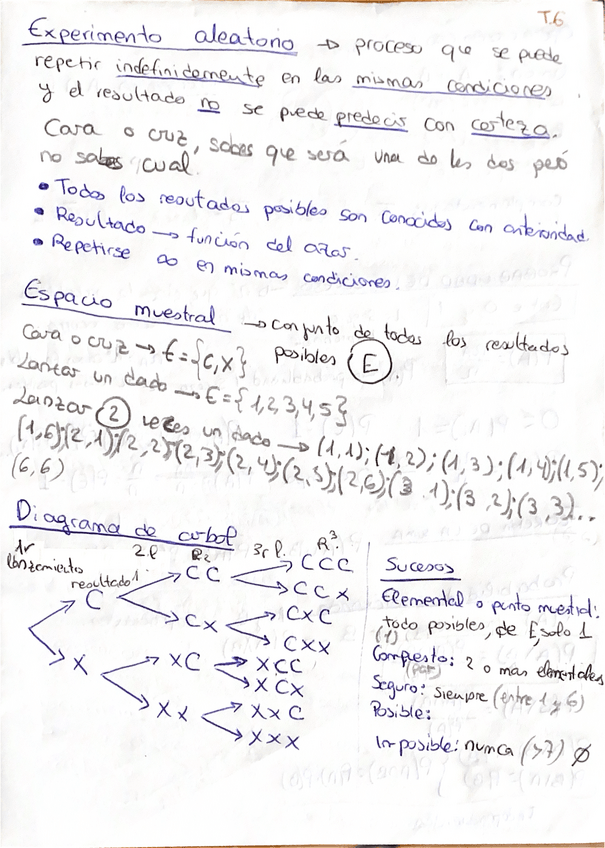 T.6
Experimento aleatorio → proceso que se puede
repetir indefinidamente en las mismas condiciones
y el resultado no se puede predecir con certeza.
Cara o cruz, sabes que será una de las dos pero
no sabes cual.
• Todos los resultados posibles son conocidos con anterioridad.
• Resultado → función del azar.
• Repetirse ∞ en mismas condiciones.
Espacio muestral → conjunto de todos los resultados
posibles (E)
Cara o cruz → E = {C, X}
Lanzar un dado → E = {1, 2, 3, 4, 5}
Lanzar (2) veces un dado → (1,1); (1,2); (1,3); (1,4); (1,5);
(1,6); (2,1); (2,2); (2,3); (2,4); (2,5); (2,6); (3,1); (3,2); (3,3)...
(6,6)
Diagrama de arbol
1r lanzamiento resultado1. 2.l R2 3r l. R3
C CC CCC
CCX
CX CXC
CXX
X XC XCC
XCX
XX XXC
XXX
Sucesos
Elemental o punto muestral:
todo posibles, de E solo 1
(1)
Compuesto: 2 o mas elementales
(par)
Seguro: siempre (entre 1 y 6)
Posible:
Imposible: nunca (>7) Ø